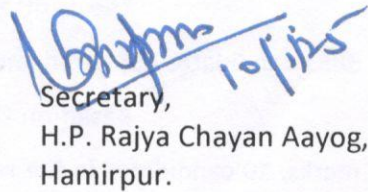 10/1/25
Secretary,
H.P. Rajya Chayan Aayog,
Hamirpur.